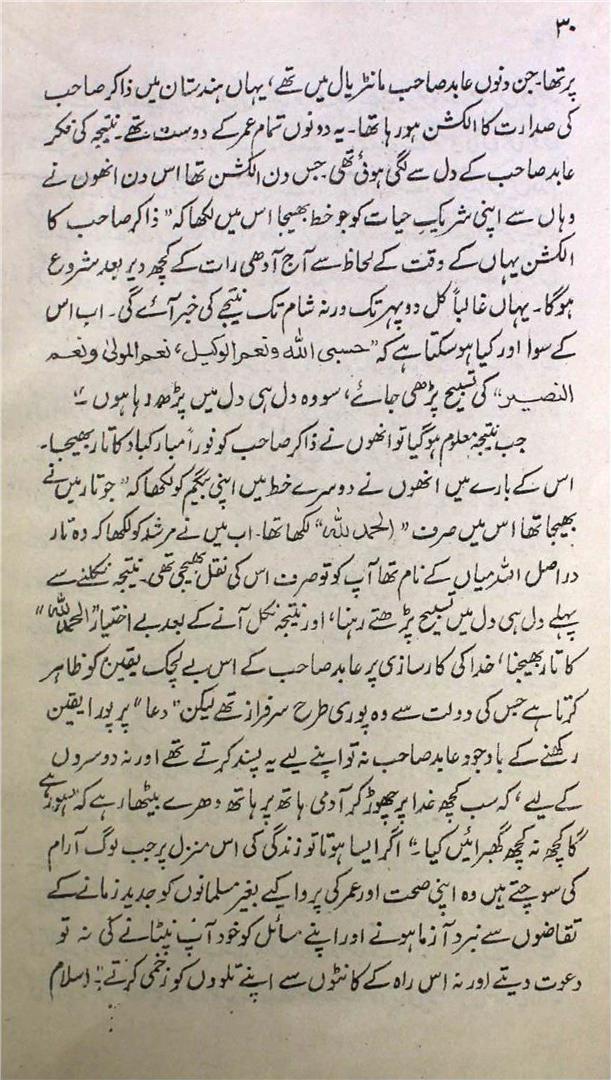 ۳۰
پر تھا۔ جن دنوں عابد صاحب مانٹریال میں تھے، یہاں ہندستان میں ذاکر صاحب
کی صدارت کا الکشن ہو رہا تھا۔ یہ دونوں تمام عمر کے دوست تھے۔ نتیجہ کی فکر
عابد صاحب کے دل سے لگی ہوئی تھی جس دن الکشن تھا اس دن انھوں نے
وہاں سے اپنی شریکِ حیات کو جو خط بھیجا اس میں لکھا کہ "ذاکر صاحب کا
الکشن یہاں کے وقت کے لحاظ سے آج آدھی رات کے کچھ دیر بعد شروع
ہوگا۔ یہاں غالباً کل دوپہر تک ورنہ شام تک نتیجے کی خبر آئے گی۔ اب اس
کے سوا اور کیا ہو سکتا ہے کہ "حسبی اللہ ونعم الوکیل، نعم المولیٰ ونعم
النصیر" کی تسبیح پڑھی جائے، سو وہ دل ہی دل میں پڑھ رہا ہوں۔"
جب نتیجہ معلوم ہوگیا تو انھوں نے ذاکر صاحب کو فوراً مبارکباد کا تار بھیجا۔
اس کے بارے میں انھوں نے دوسرے خط میں اپنی بیگم کو لکھا کہ "جو تار میں نے
بھیجا تھا اس میں صرف "الحمد للہ" لکھا تھا۔ اب میں نے مرشد کو لکھا کہ وہ تار
در اصل اللہ میاں کے نام تھا آپ کو تو صرف اس کی نقل بھیجی تھی۔ نتیجہ نکلنے سے
پہلے دل ہی دل میں تسبیح پڑھتے رہنا، اور نتیجہ نکل آنے کے بعد بے اختیار "الحمد للہ"
کا تار بھیجنا، خدا کی کارسازی پر عابد صاحب کے اس بے لچک یقین کو ظاہر
کرتا ہے جس کی دولت سے وہ پوری طرح سرفراز تھے لیکن "دعا" پر پورا یقین
رکھنے کے باوجود عابد صاحب نہ تو اپنے لیے یہ پسند کرتے تھے اور نہ دوسروں
کے لیے، کہ سب کچھ خدا پر چھوڑ کر آدمی ہاتھ پر ہاتھ دھرے بیٹھا رہے کہ "ہو رہے
گا کچھ نہ کچھ گھبرائیں کیا۔" اگر ایسا ہوتا تو زندگی کی اس منزل پر جب لوگ آرام
کی سوچتے ہیں وہ اپنی صحت اور عمر کی پروا کیے بغیر مسلمانوں کو جدید زمانے کے
تقاضوں سے نبرد آزما ہونے اور اپنے مسائل کو خود آپ نپٹانے کی نہ تو
دعوت دیتے اور نہ اس راہ کے کانٹوں سے اپنے تلووں کو زخمی کرتے۔ "اسلام